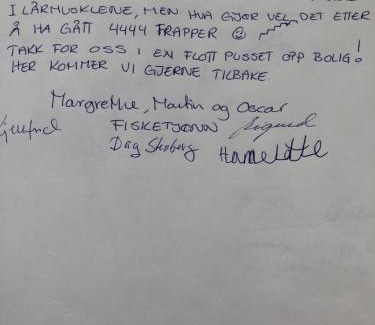 I LÅRMUSKLENE, MEN HVA GJØR VEL DET ETTER
Å HA GÅTT 4444 TRAPPER
TAKK FOR OSS I EN FLOTT PUSSET OPP BOLIG!
HER KOMMER VI GJERNE TILBAKE.
Margrethe, Martin og Oscar
FISKETJØNN Sigurd
Dag